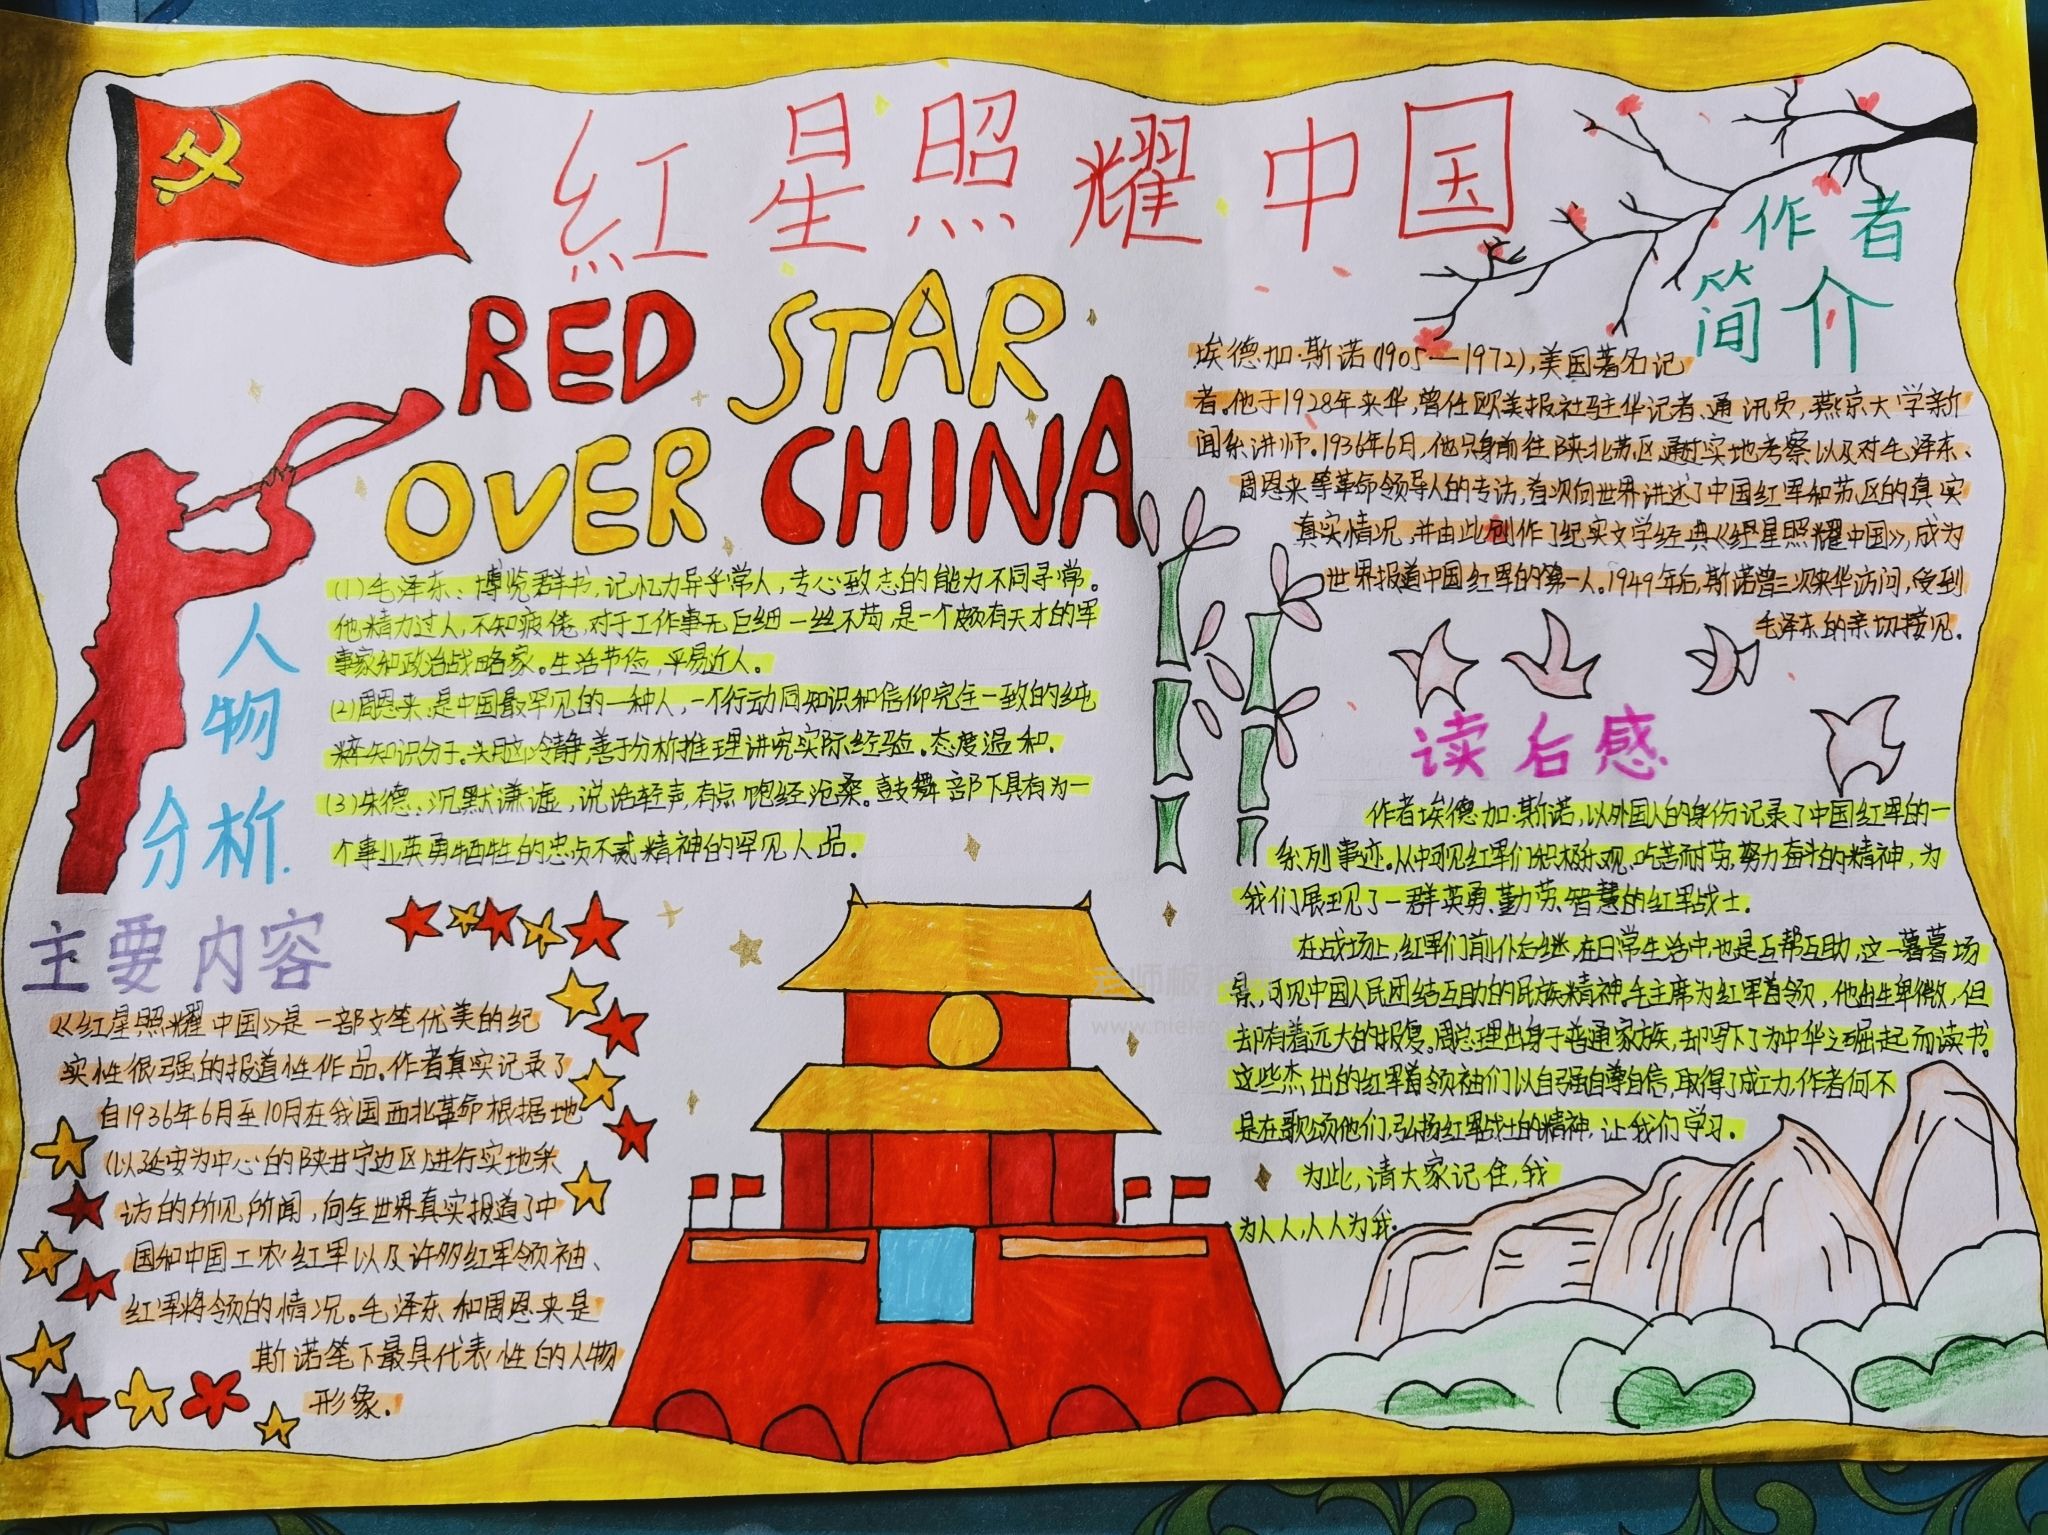 红星照耀中国
RED STAR
OVER CHINA
作者
简介
埃德加·斯诺(1905—1972),美国著名记
者。他于1928年来华,曾任欧美报社驻华记者、通讯员,燕京大学新
闻系讲师。1936年6月,他只身前往陕北苏区,通过实地考察以及对毛泽东、
周恩来等革命领导人的专访,首次向世界讲述了中国红军和苏区的真实
真实情况,并由此创作了纪实文学经典《红星照耀中国》,成为
世界报道中国红军的第一人。1949年后,斯诺曾三次来华访问,受到
毛泽东的亲切接见。
人
物
分析.
(1)毛泽东:博览群书,记忆力异乎常人,专心致志的能力不同寻常。
他精力过人,不知疲倦,对于工作事无巨细一丝不苟,是一个颇有天才的军
事家和政治战略家。生活节俭,平易近人。
(2)周恩来:是中国最罕见的一种人,一个行动同知识和信仰完全一致的纯
粹知识分子。头脑冷静,善于分析推理讲究实际经验。态度温和.
(3)朱德:沉默谦虚,说话轻声,有点饱经沧桑。鼓舞部下具有为一
个事业英勇牺牲的忠贞不贰精神的罕见人品.
主要内容
《红星照耀中国》是一部文笔优美的纪
实性很强的报道性作品.作者真实记录了
自1936年6月至10月在我国西北革命根据地
(以延安为中心的陕甘宁边区)进行实地采
访的所见所闻,向全世界真实报道了中
国和中国工农红军以及许多红军领袖、
红军将领的情况。毛泽东和周恩来是
斯诺笔下最具代表性的人物
形象.
读后感
作者埃德加·斯诺,以外国人的身份记录了中国红军的一
系列事迹.从中可见红军们积极乐观、吃苦耐劳,努力奋斗的精神,为
我们展现了一群英勇、勤劳、智慧的红军战士.
在战场上,红军们前仆后继,在日常生活中也是互帮互助,这一幕幕场
景,可见中国人民团结互助的民族精神.毛主席为红军首领,他出生卑微,但
却有着远大的报复。周总理出身于普通家族,却写下了为中华之崛起而读书。
这些杰出的红军首领袖们以自强自尊自信,取得了成功,作者何不
是在歌颂他们,弘扬红军战士的精神,让我们学习.
为此,请大家记住,我
为人人,人人为我.